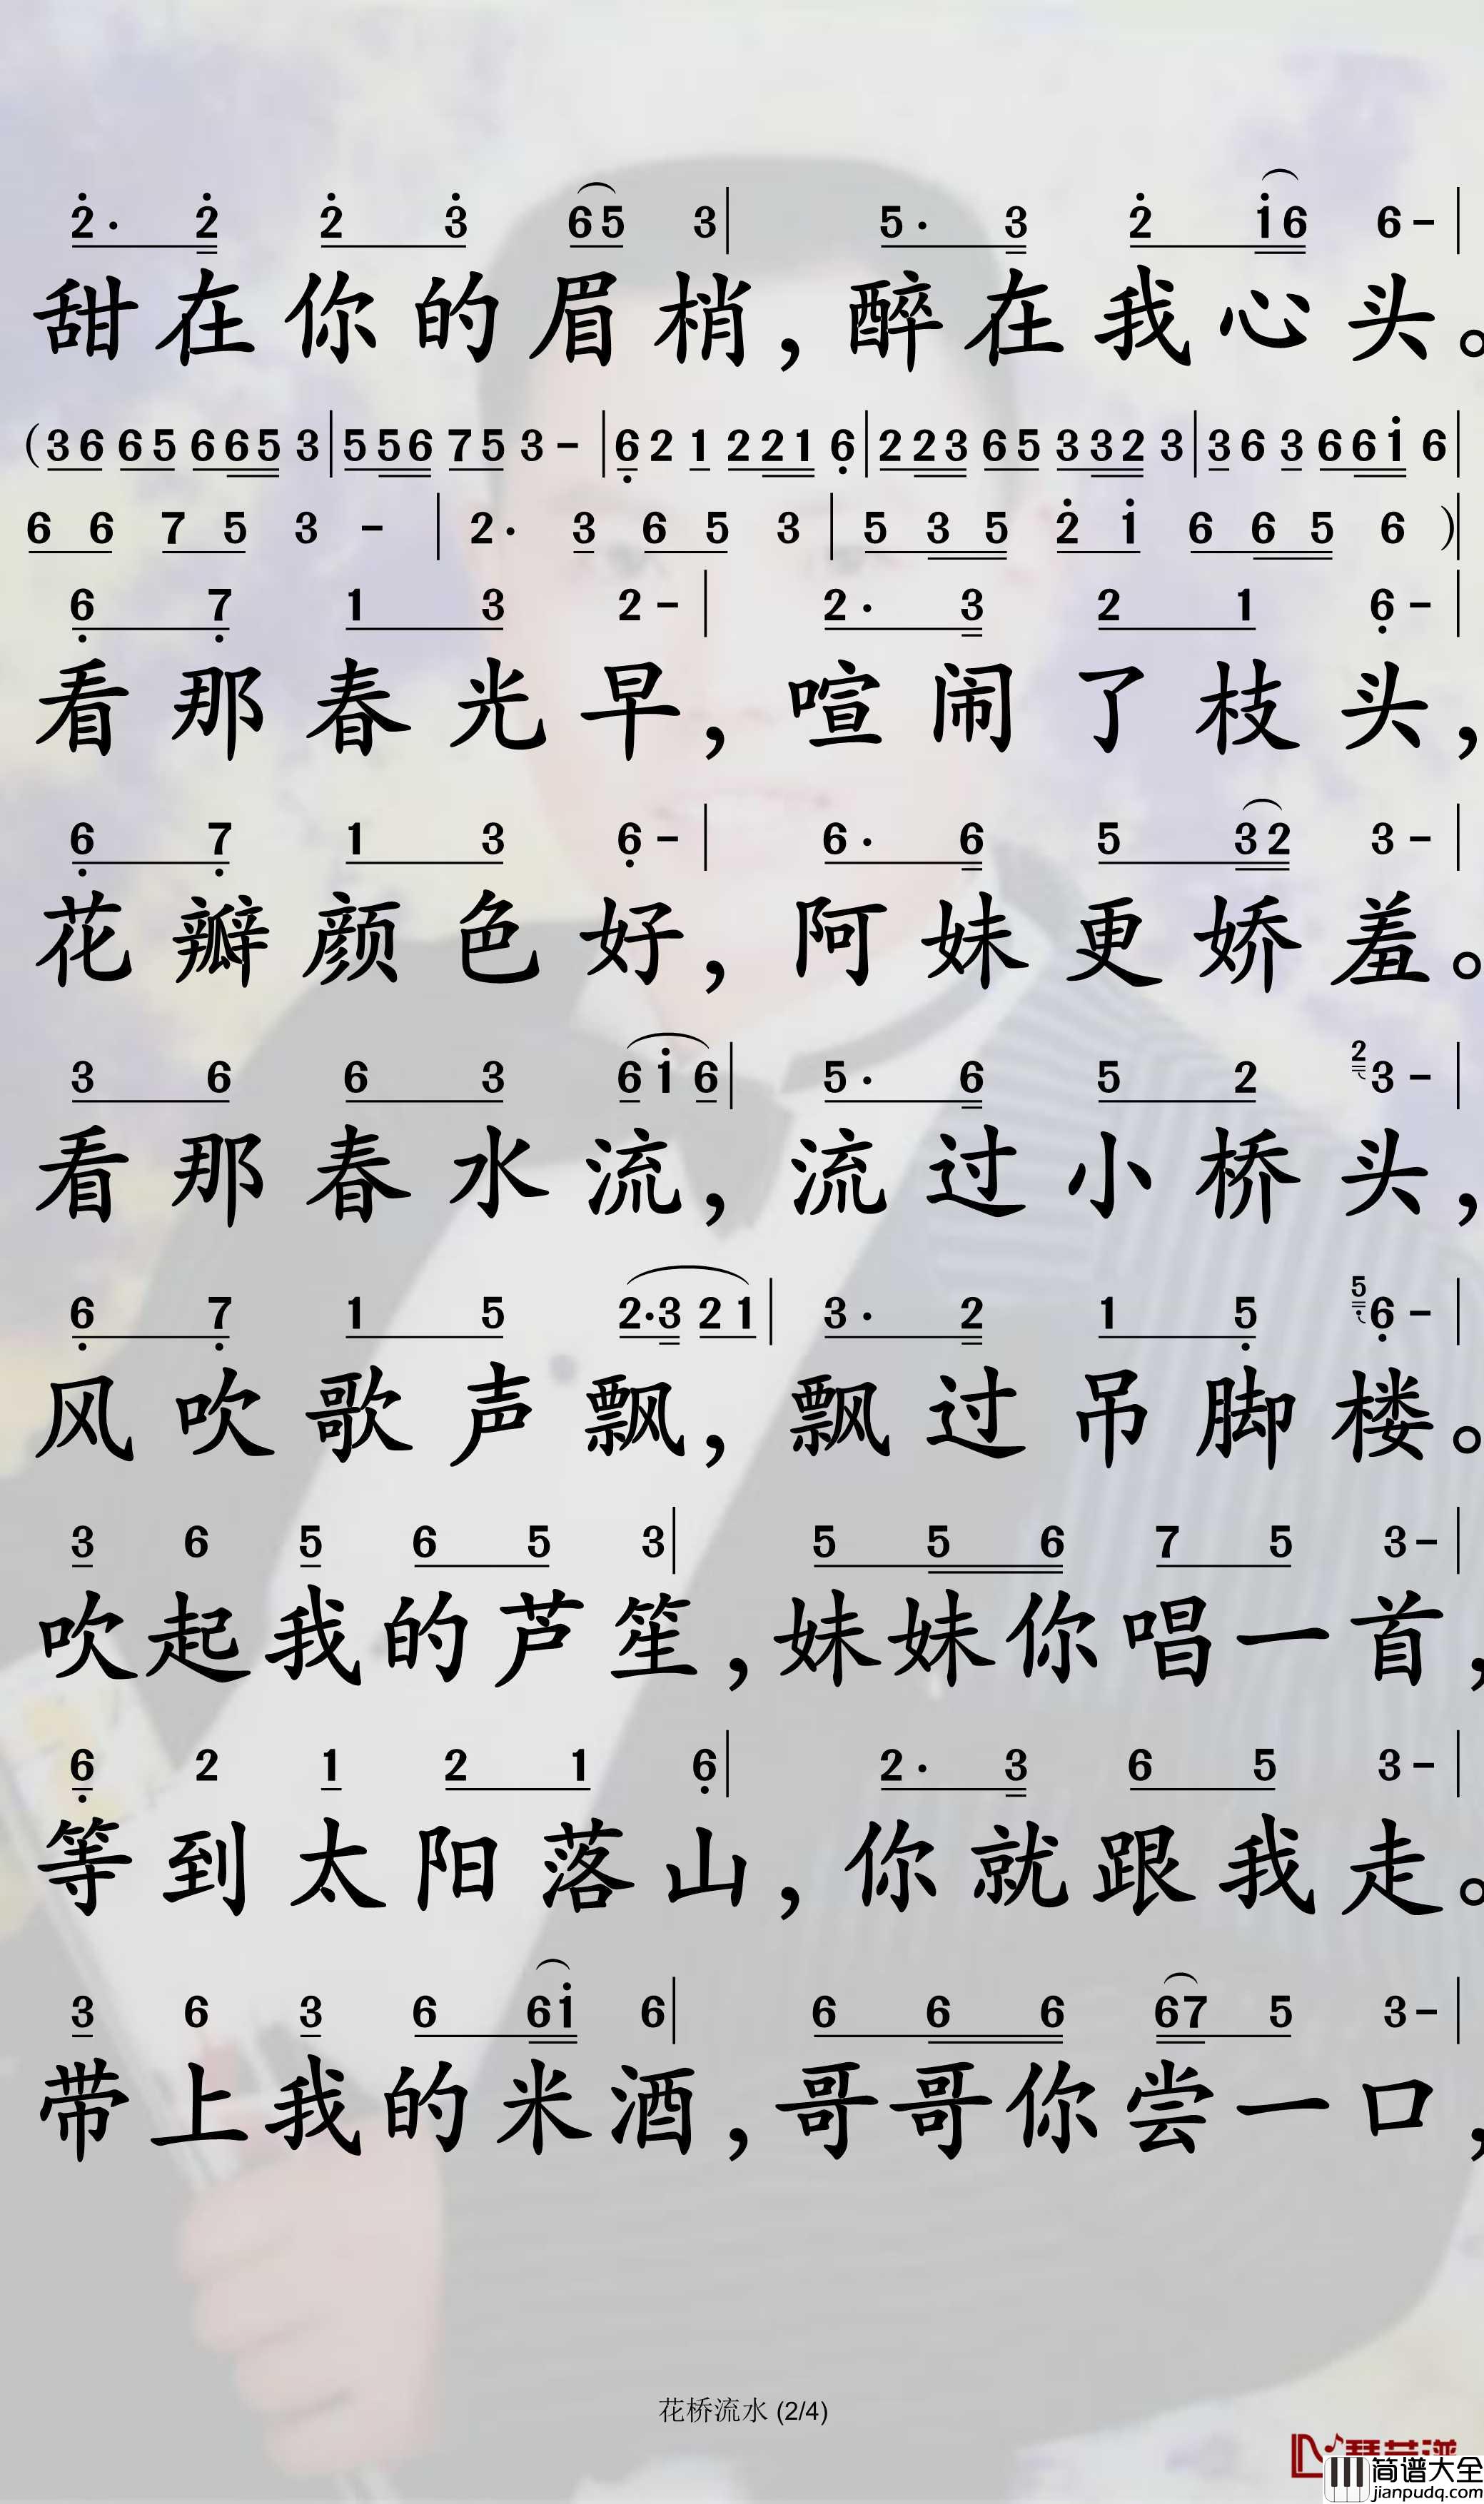 2· 2 2 3 65 3| 5· 3 2 16 6-|
甜在你的眉梢，醉在我心头。
(36 65 665 3|556 75 3-|6 2 1 221 6|223 65 332 3|3 6 3 661 6|
6 6 7 5 3 - | 2· 3 6 5 3 | 5 3 5 2 1 6 6 5 6 )|
6 7 1 3 2-| 2· 3 2 1 6-|
看那春光早，喧闹了枝头，
6 7 1 3 6-| 6· 6 5 32 3-|
花瓣颜色好，阿妹更娇羞。
3 6 6 3 6 1 6| 5· 6 5 2 2 3-|
看那春水流，流过小桥头，
6 7 1 5 2·3 2 1| 3· 2 1 5 5 6-|
风吹歌声飘，飘过吊脚楼。
3 6 5 6 5 3| 5 5 6 7 5 3-|
吹起我的芦笙，妹妹你唱一首，
6 2 1 2 1 6| 2· 3 6 5 3-|
等到太阳落山，你就跟我走。
3 6 3 6 61 6| 6 6 6 67 5 3-|
带上我的米酒，哥哥你尝一口，
花桥流水 (2/4)
简谱大全
jianpudq.com